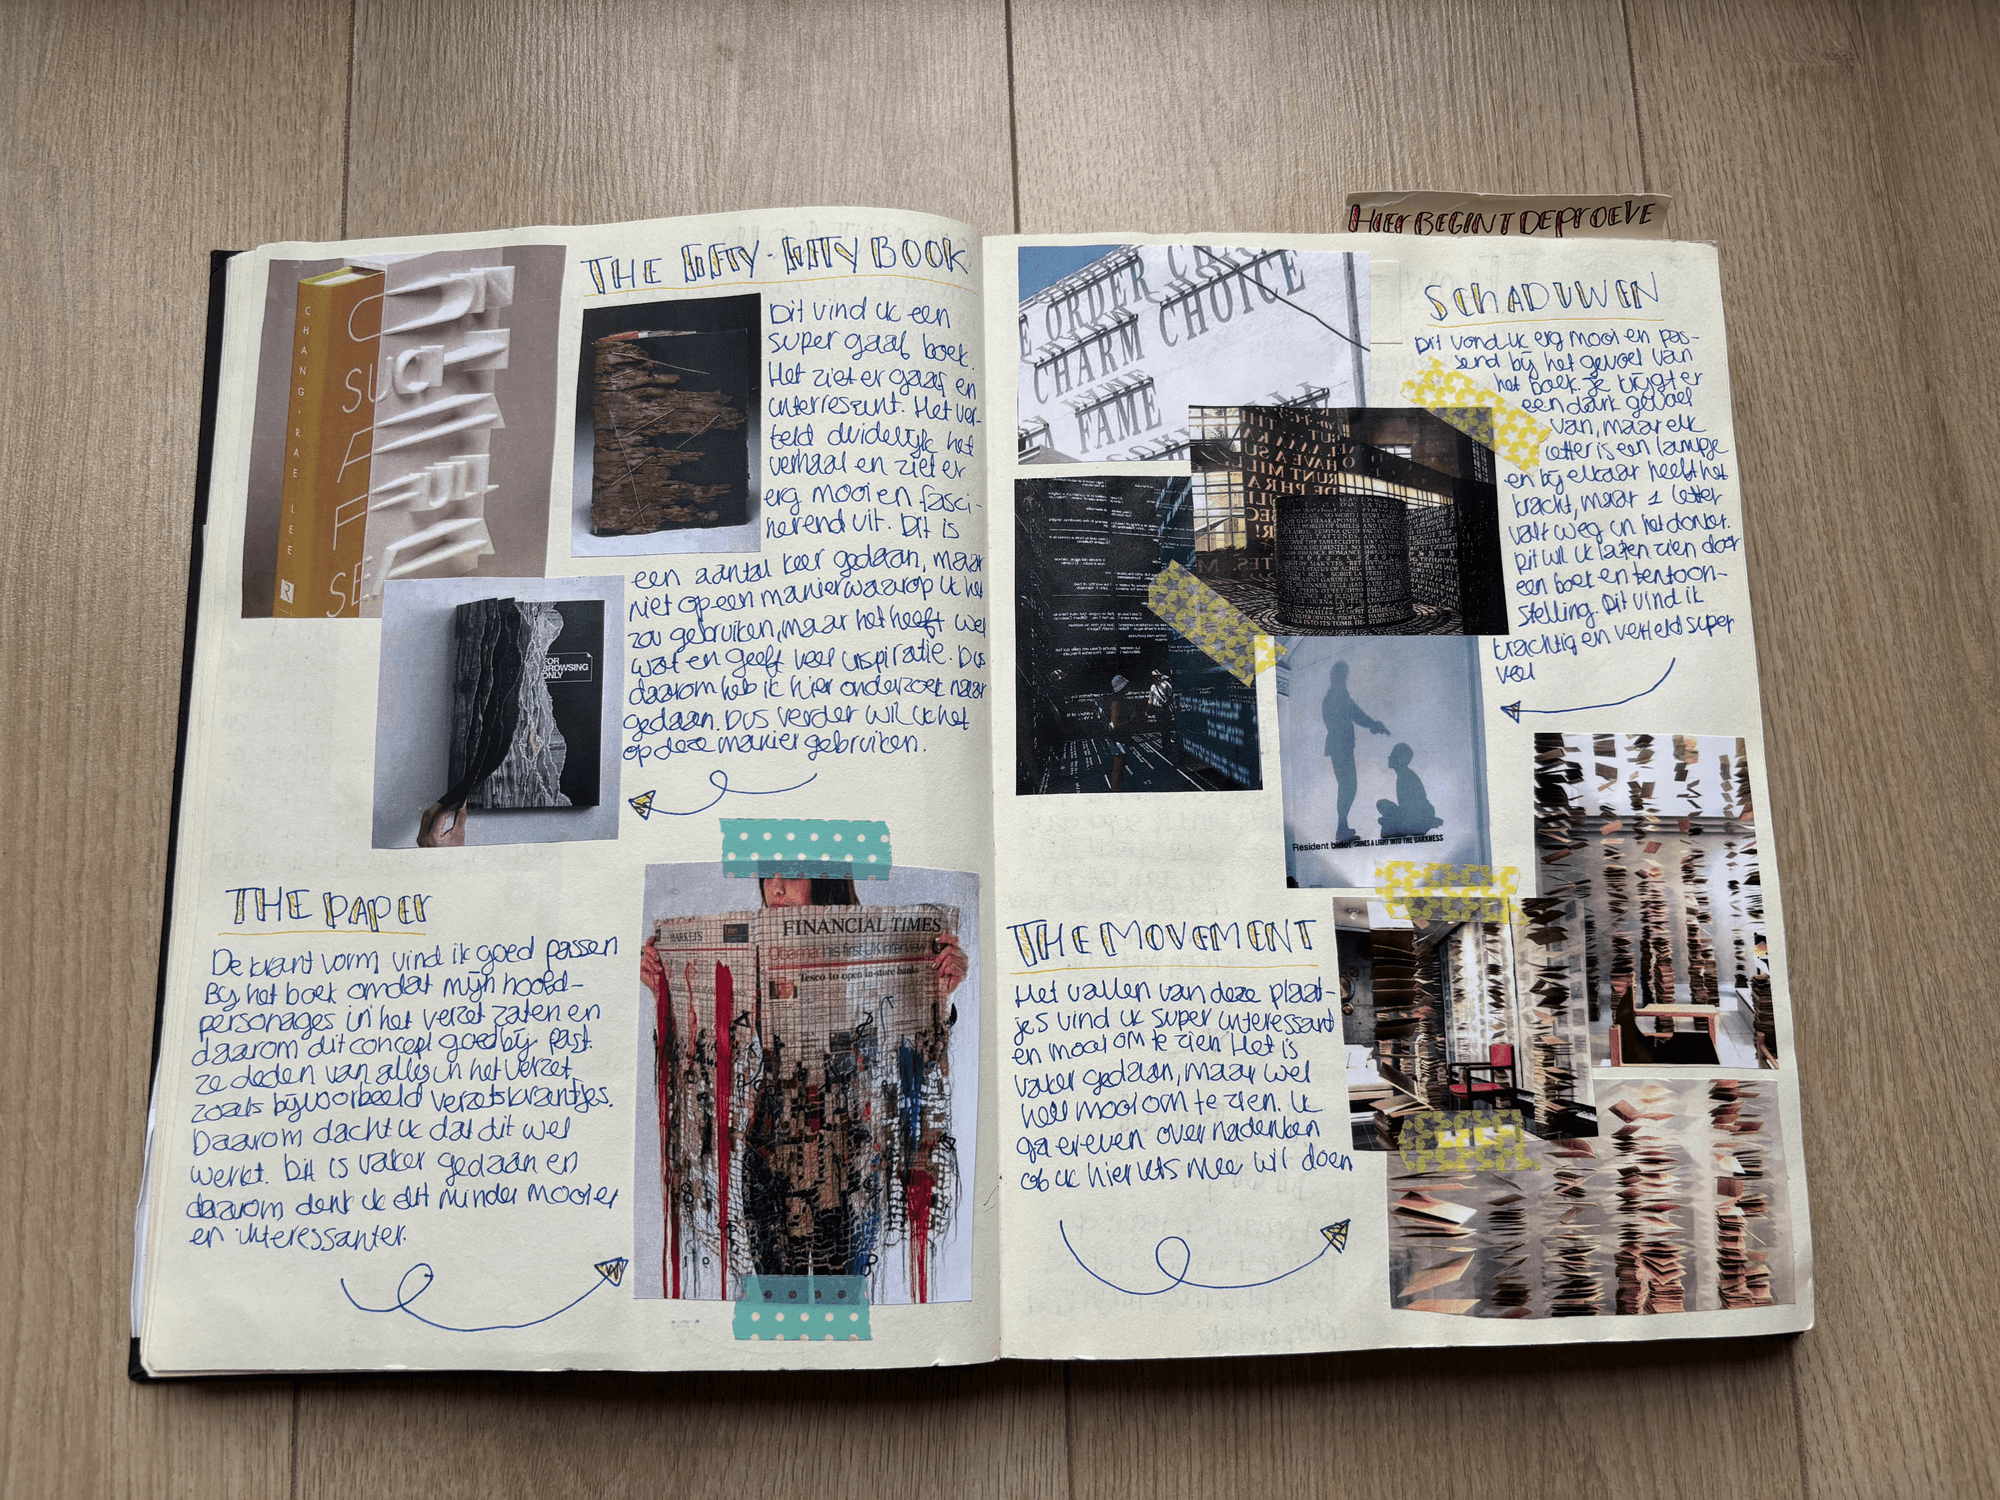 HIER BEGINT DE PROEVE
THE FIFTY-FIFTY BOOK
Dit vind ik een
super gaaf boek.
Het ziet er gaaf en
interressunt. Het ver-
teld duidelijk het
verhaal en ziet er
erg mooi en fasci-
nerend uit. Dit is
een aantal keer gedaan, maar
niet op een manier waarop ik het
zou gebruiken, maar het heeft wel
wat en geeft veel inspiratie. Dus
daarom heb ik hier onderzoek naar
gedaan. Dus verder wil ik het
op deze manier gebruiken.
CHANG-RAE LEE
R
FOR
BROWSING
ONLY
THE PAPER
De krant vorm vind ik goed passen
Bij het boek omdat mijn hoofd-
personages in het verzet zaten en
daarom dit concept goed bij past.
ze deden van alles in het verzet,
zoals bijvoorbeeld verzetskrantjes.
Daarom dacht ik dat dit wel
werkt. Dit is vaker gedaan en
daarom denk ik dit minder mooi er
en interessanter.
MARKETS
FINANCIAL TIMES
Obama: his first UK interview
Tesco to open in-store banks
SCHADUWEN
Dit vond ik erg mooi en pas-
send bij het gevoel van
het boek. Je krijgt er
een dark gevoel
van, maar elk
letter is een lampje
en bij elkaar heeft het
kracht, maar 1 letter
valt weg in het donker.
Dit wil ik laten zien door
een boek en tentoon-
stelling. Dit vind ik
krachtig en verteld super
veel
ORDER
CHARM CHOICE
FAME
Resident bidot SHINES A LIGHT INTO THE DARKNESS
THE MOVEMENT
Het vallen van deze plaat-
jes vind ik super interessant
en mooi om te zien Het is
vaker gedaan, maar wel
heel mooi om te zien. Ik
ga er even over nadenken
of ik hier iets mee wil doen